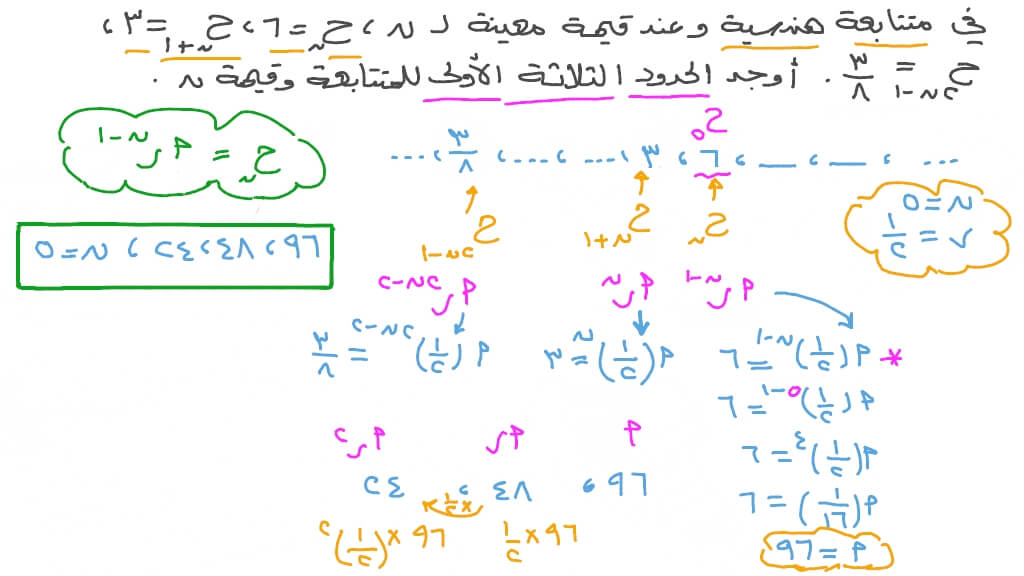 في متتابعة هندسية وعند قيمة معينة لـ ن ، ح ن = ٦ ، ح ن+١ = ٣ ،
ح ٢ن-١ = ٣/٨ . أوجد الحدود الثلاثة الأولى للمتتابعة وقيمة ن .
ح ن = أ ر^(ن-١)
ح ٥
... ، __ ، __ ، ٦ ، ٣ ، ... ، ... ، ٣/٨ ، ...
ح ن
ح ن+١
ح ٢ن-١
ن = ٥
ر = ١/٢
٩٦ ، ٤٨ ، ٢٤ ، ن = ٥
أ ر^(ن-١)
أ ر^ن
أ ر^(٢ن-٢)
* أ(١/٢)^(ن-١) = ٦
أ(١/٢)^ن = ٣
أ(١/٢)^(٢ن-٢) = ٣/٨
أ(١/٢)^(٥-١) = ٦
أ(١/٢)^٤ = ٦
أ(١/١٦) = ٦
أ = ٩٦
أ أر أر^٢
٩٦ ، ٤٨ ، ٢٤
×١/٢
٩٦ × ١/٢
٩٦ × (١/٢)^٢